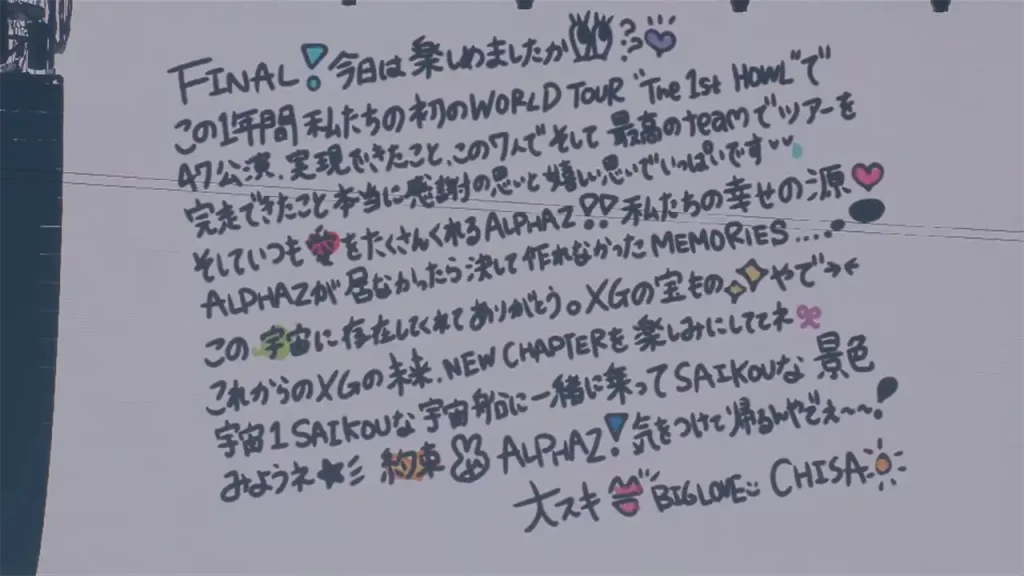 FINAL! 今日は楽しめましたか??
この1年間私たちの初のWORLD TOUR "The 1st HOWL"で
47公演、実現できたこと、この7人でそして最高のteamでツアーを
完走できたこと本当に感謝の思いと嬉しい思いでいっぱいです
そしていつも愛をたくさんくれるALPHAZ!! 私たちの幸せの源
ALPHAZが居なかったら決して作れなかったMEMORIES....
この宇宙に存在してくれてありがとう。XGの宝ものやで→←
これからのXGの未来、NEW CHAPTERを楽しみにしててネ
宇宙1 SAIKOUな宇宙船に一緒に乗ってSAIKOUな景色
みようネ★彡 約束 ALPHAZ! 気をつけて帰るんやでぇ〜〜!
大スキ BIG LOVE CHISA